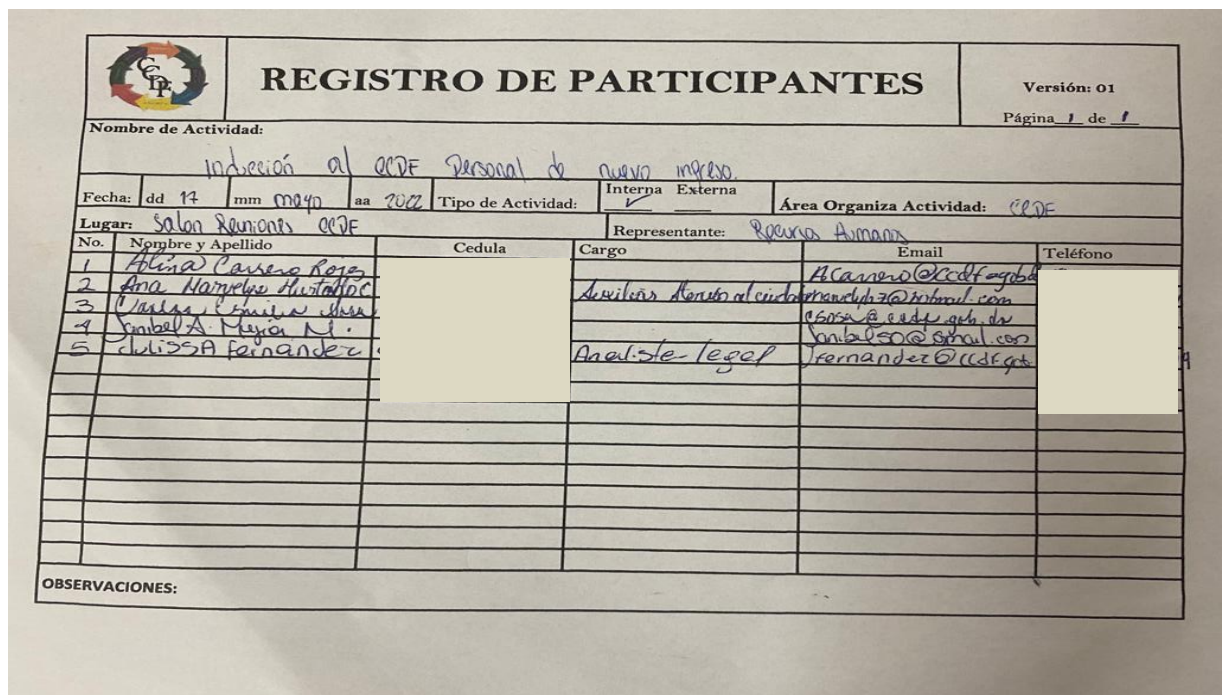 CCDF
REGISTRO DE PARTICIPANTES
Versión: 01
Página 1 de 1
Nombre de Actividad:
Inducción al CCDF Personal de nuevo ingreso.
Fecha: dd 17 mm mayo aa 2022 Tipo de Actividad: Interna Externa Área Organiza Actividad: CCDF
Lugar: Salon Reuniones CCDF Representante: Recursos Humanos
No. Nombre y Apellido Cedula Cargo Email Teléfono
1 Alina Carrero Rojas Acarrero@ccdf.gob.d
2 Ana Auxiliar Atención al @hotmail.com
3 csosa@ccdf.gob.do
4 Janibel A. Mejia M. Janibel50@gmail.com
5 Julissa Fernandez Analista-legal Jfernandez@ccdf.gob
OBSERVACIONES: